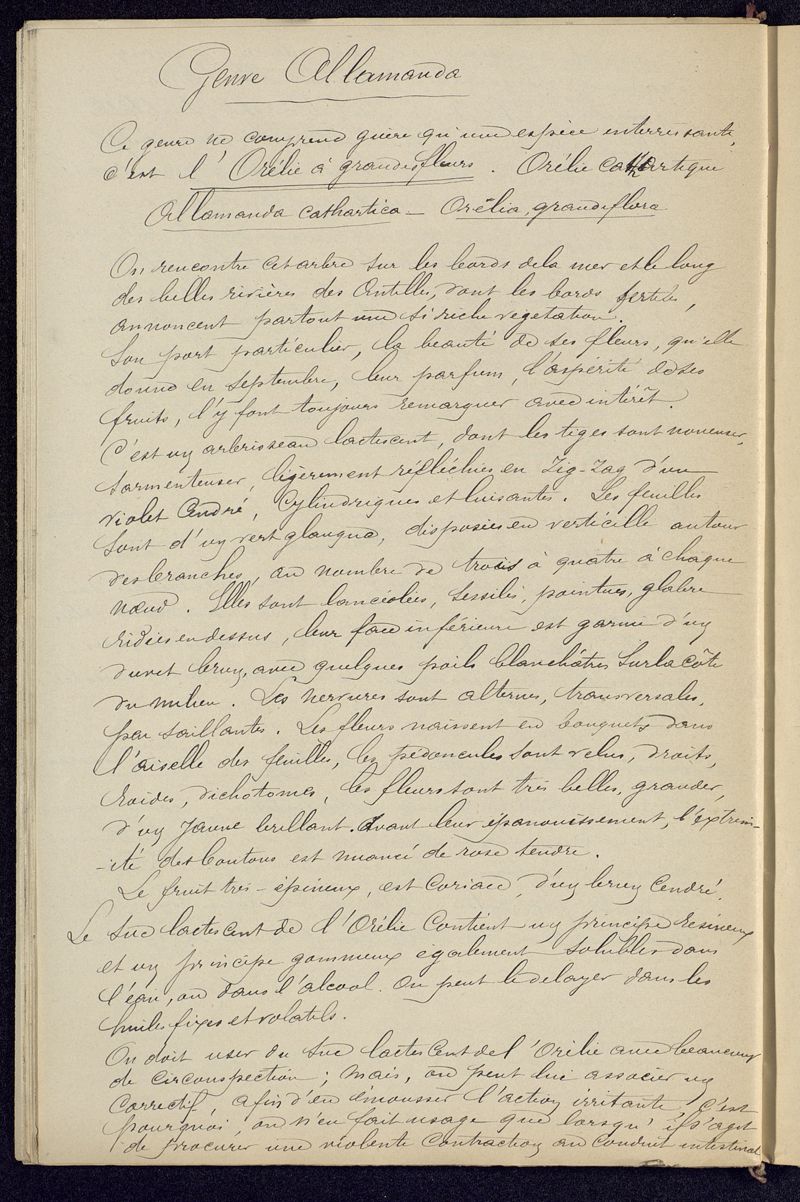 Genre Allamanda
Ce genre ne comprend guère qu'une espèce interressante,
c'est l'Orélie à grandes fleurs. Orélie cathartique
Allamanda cathartica _ Orélia, grandiflora
On rencontre cet arbre sur les bords de la mer et le long
des belles rivières des Antilles, dont les bords fertiles,
annoncent partout une si riche vegetation.
Son port particulier, la beauté de ses fleurs, qu'elle
donne en septembre, leur parfum, l'aspérité de ses
fruits, l'y font toujours remarquer avec intérêt.
C'est un arbrisseau lactescent, dont les tiges sont noueuses,
sarmenteuses, légèrement réfléchies en Zig-Zag d'un
violet cendré, cylindriques et luisantes. Les feuilles
sont d'un vert glauque, disposées en verticille autour
des branches, au nombre de trois à quatre à chaque
nœud. Elles sont lancéolées, sessiles, pointues, glabre
ridées en dessus, leur face inférieure est garnie d'un
duvet brun, avec quelques poils blanchâtres sur la côte
du milieu. Les nervures sont alternes, transversales,
peu saillantes. Les fleurs naissent en bouquets dans
l'aiselle des feuilles, les pédoncules sont velus, droits,
roides, dichotomes, les fleurs sont très belles, grandes,
d'un jaune brillant. Avant leur épanouissement, l'extrém-
-ité des boutons est nuancé de rose tendre.
Le fruit très-épineux, est coriace, d'un brun cendré.
Le suc lactescent de l'Orélie contient un principe résineux
et un principe gommeux egalement solubles dans
l'eau, ou dans l'alcool. On peut le delayer dans les
huiles fixes et volatils.
On doit user du suc lactescent de l'Orélie avec beaucoup
de circonspection; mais, on peut lui associer un
correctif, afin d'en émousser l'action irritante, c'est
pourquoi on n'en fait usage que lorsqu'il s'agit
de procurer une violente contraction au conduit intestinal